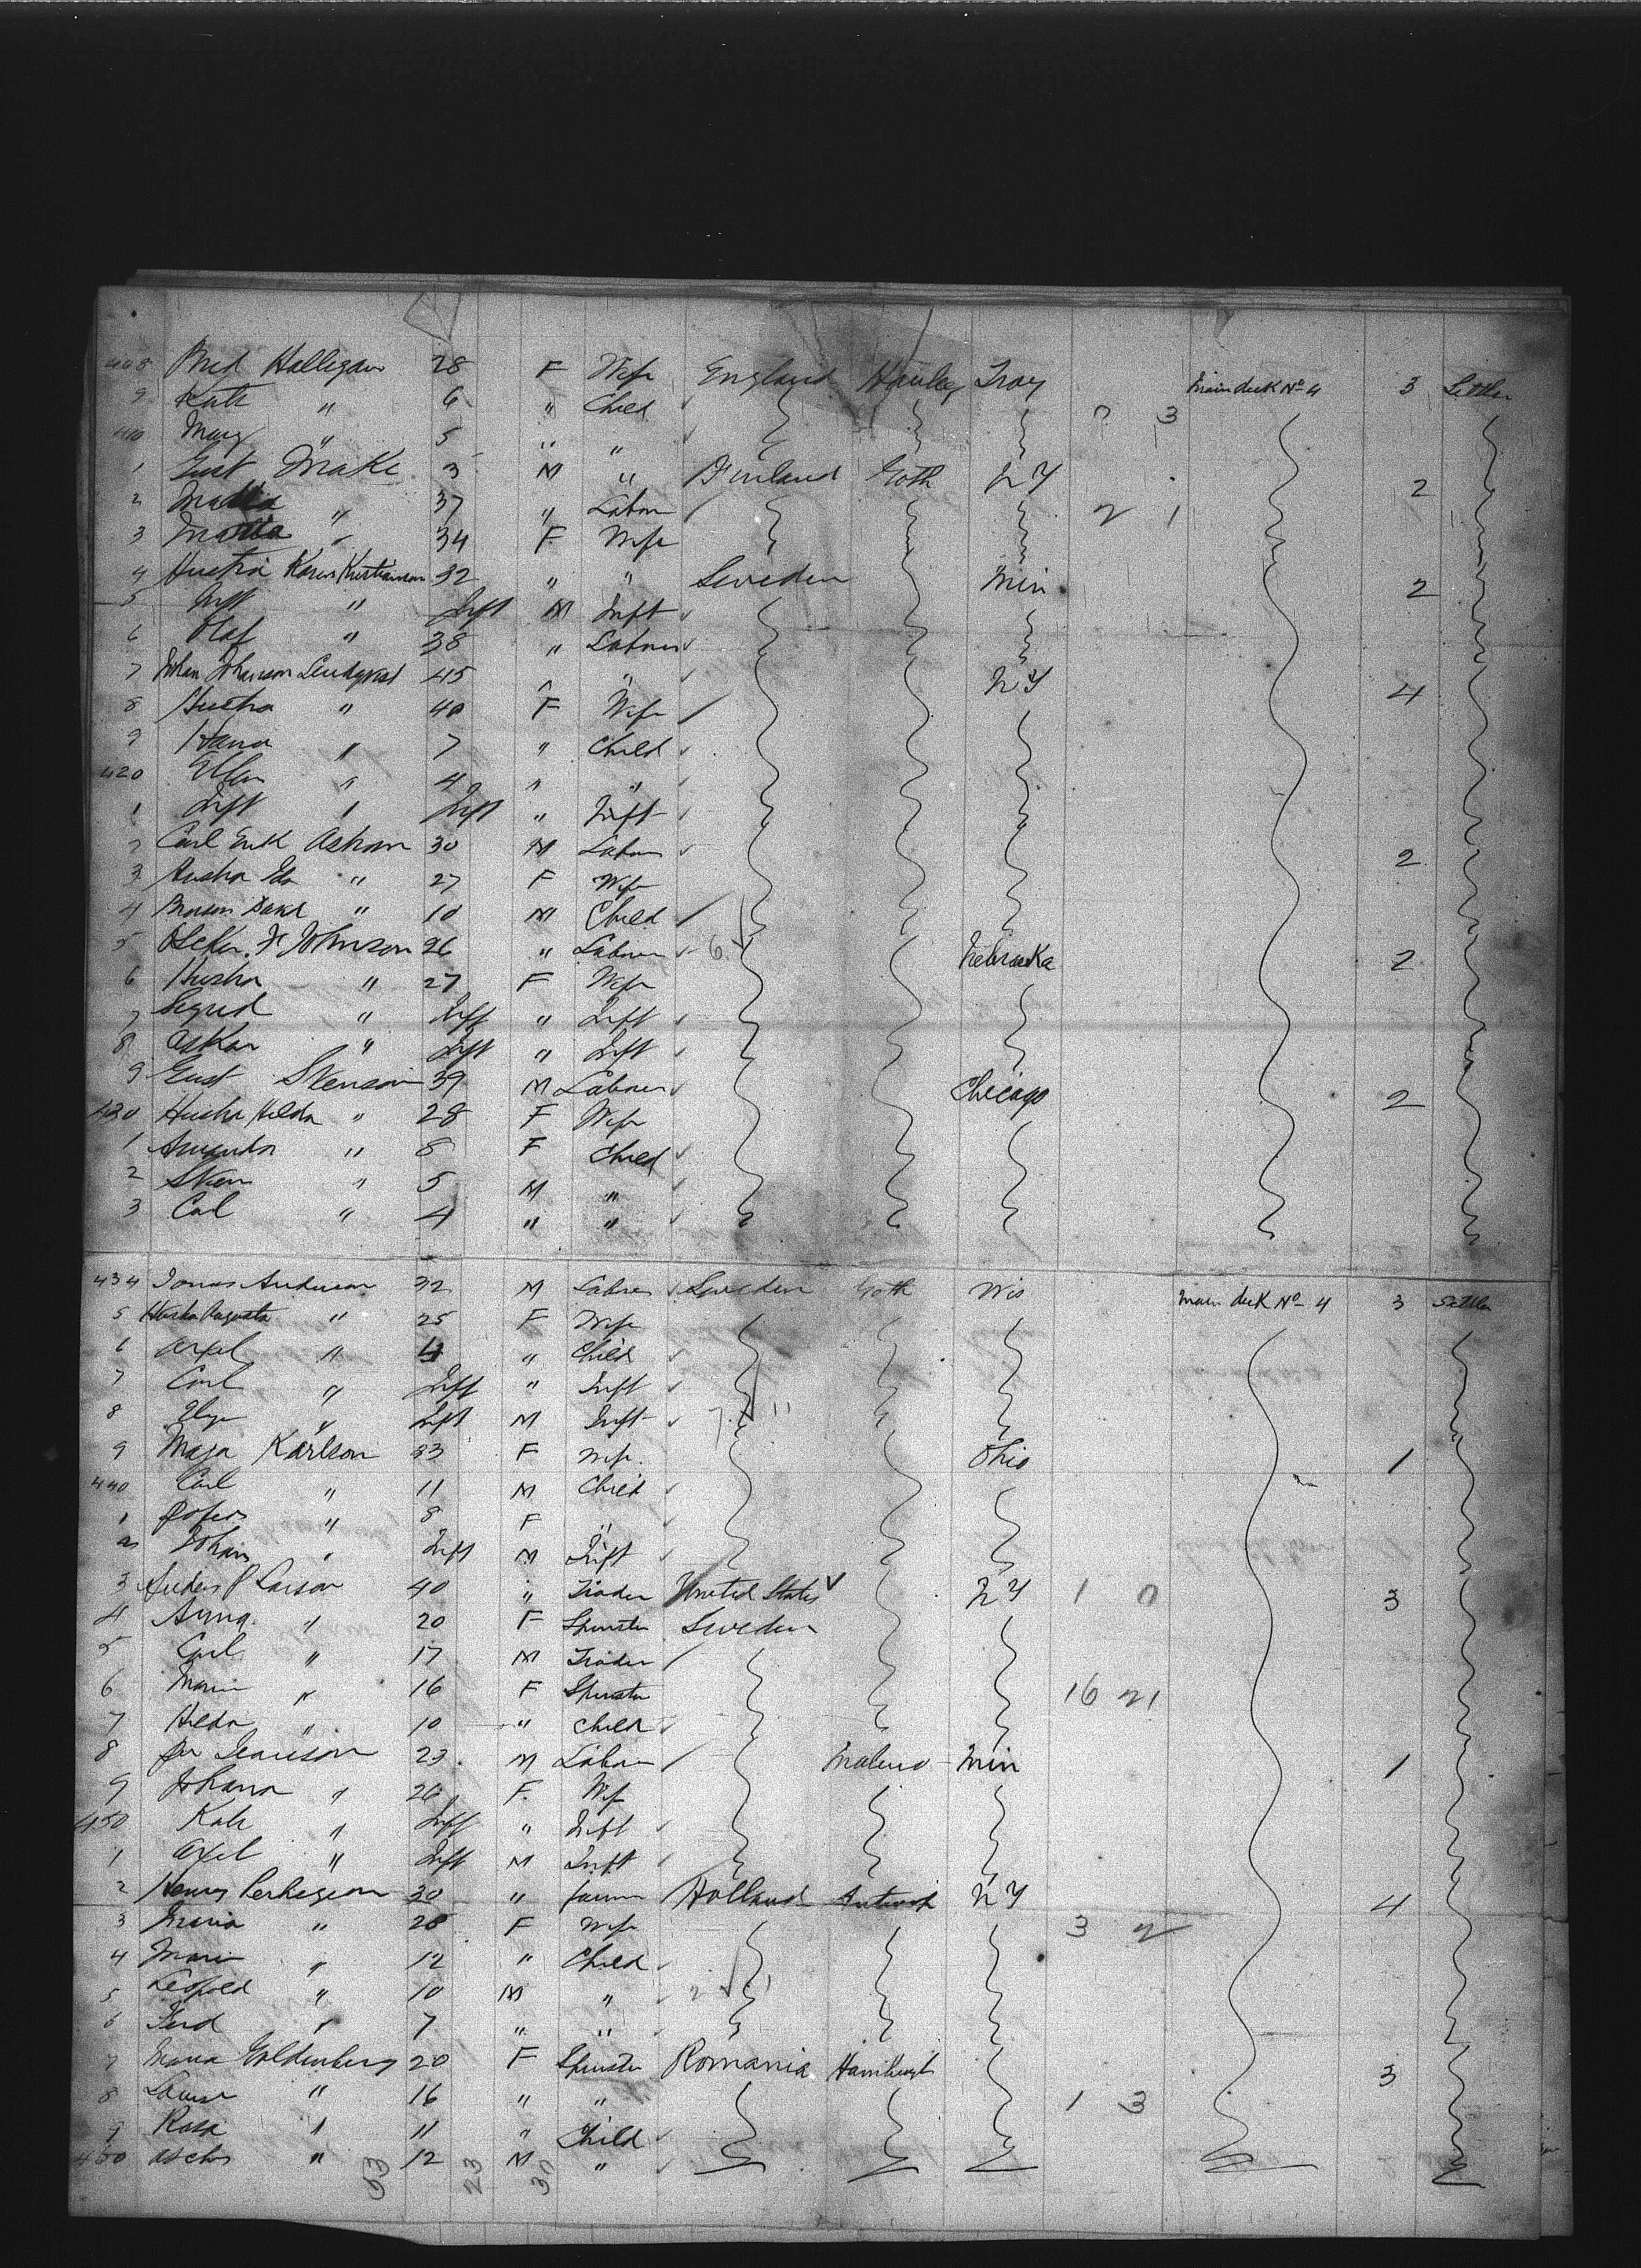 408 Halligan 28 F Wife England Hanley Troy Main deck No 4 3 Settler
9 Kate " 6 " Child 0 3
410 Mary " 5 " "
1 Gust Make 3 M " Finland Goth N Y 2
2 " 37 " Labour 2 1
3 Maria " 34 F Wife
4 Hustra Karin Kristianson 32 " " Sweden Min 2
5 Inft " Inft M Inft
6 Olaf " 38 " Labourer
7 Johan Johanson Lindqvist 45 " " N Y 4
8 Hustra " 40 F Wife
9 Hana " 7 " Child
420 Ellen " 4 " "
1 Inft " Inft " Inft
2 Carl Erik 30 M Labour 2
3 Hustra Ida " 27 F Wife
4 " 10 M Child
5 Johnson 26 " Labourer 6 Nebraska 2
6 Hustra " 27 F Wife
7 Sigrid " Inft " Inft
8 Oskar " Inft " Inft
9 Gust Svenson 39 M Labourer Chicago 2
430 Hustra Hilda " 28 F Wife
1 Amanda " 8 F Child
2 Sven " 5 M "
3 Carl " 4 " "
434 Jonas Anderson 32 M Labourer Sweden Goth Wis Main deck No 4 3 Settler
5 Hustra Augusta " 25 F Wife
6 Axel " 4 " Child
7 Carl " Inft " Inft
8 " Inft M Inft 7 11
9 Maja Karlson 33 F Wife Ohio 1
440 Carl " 11 M Child
1 " 8 F "
2 Johan " Inft M Inft
3 Anders P Larson 40 " Trader United States N Y 1 0 3
4 Anna " 20 F Spinster Sweden
5 Carl " 17 M Trader
6 Maria " 16 F Spinster 16 21
7 Hilda " 10 " Child
8 Per 23 M Labour Malmo Min 1
9 Johana " 26 F Wife
450 Kate " Inft " Inft
1 Axel " Inft M Inft
2 Henry 30 " Farmer Holland Antwerp N Y 4
3 Maria " 28 F Wife 3 2
4 Mari " 12 " Child
5 Leopold " 10 M " 2 1
6 Ferd " 7 " "
7 Maria Goldenberg 20 F Spinster Romania Hamburgh 3
8 Louisa " 16 " " 1 3
9 Rosa " 11 " Child
460 " 12 M "
53 23 30